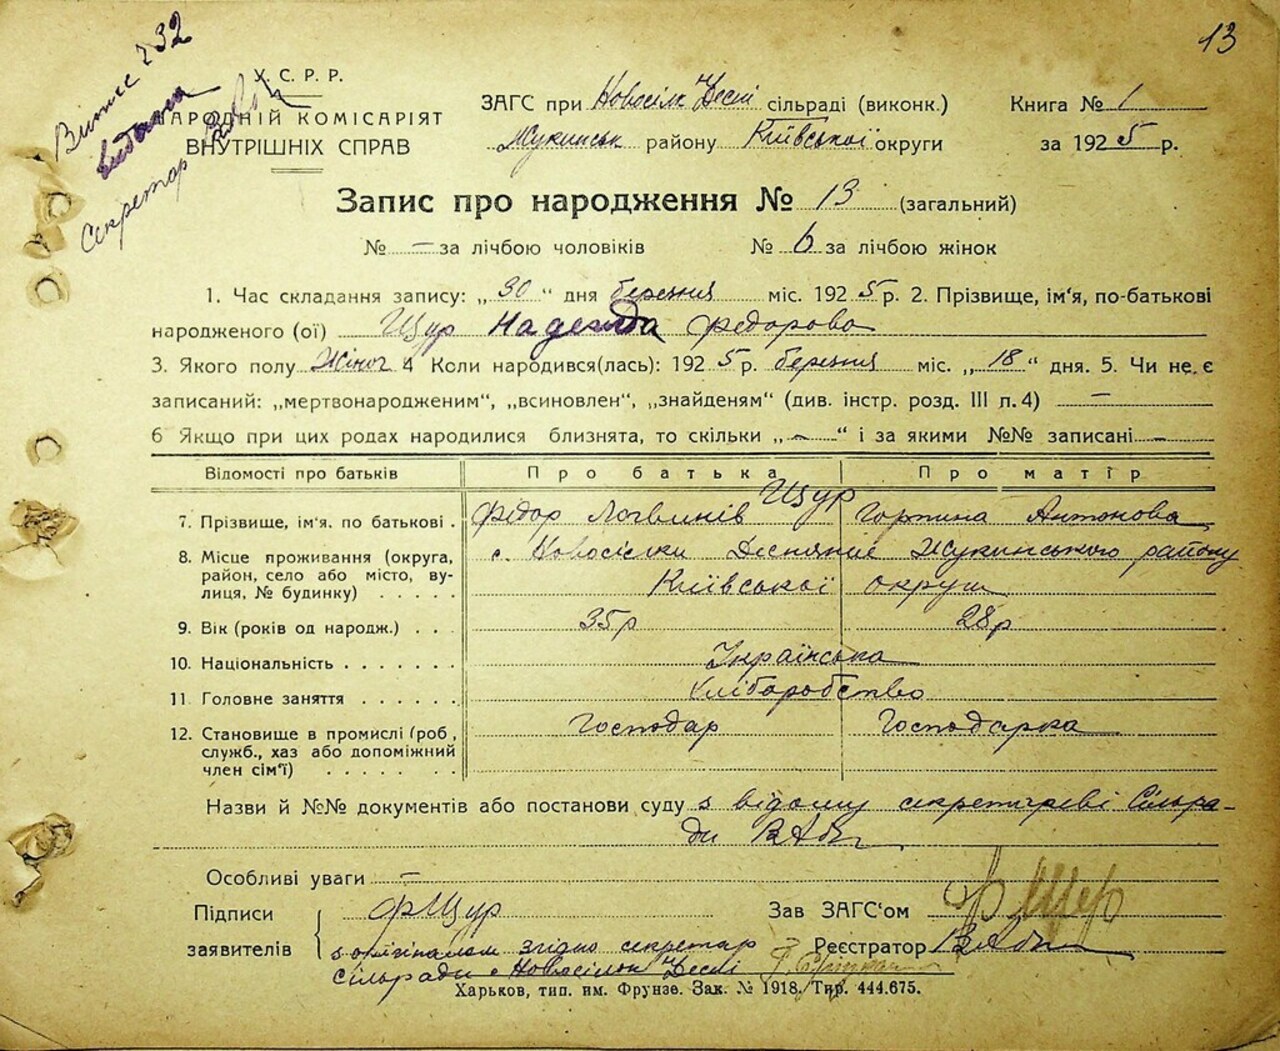 13
Випис 232
видана
Секретар
У.С.Р.Р.
НАРОДНІЙ КОМІСАРІЯТ
ВНУТРІШНІХ СПРАВ
ЗАГС при Новосілк Десні сільраді (виконк.)
Жукинськ району Київської округи
Книга № 1
за 1925 р.
Запис про народження № 13 (загальний)
№ — за лічбою чоловіків № 6 за лічбою жінок
1. Час складання запису: „30“ дня березня міс. 1925 р. 2. Прізвище, ім'я, по-батькові
народженого (ої) Щур Надежда Федорова
3. Якого полу Жіноч 4 Коли народився(лась): 1925 р. березня міс. „18“ дня. 5. Чи не є
записаний: „мертвонародженим“, „всиновлен“, „знайденям“ (див. інстр. розд. III п. 4) —
6 Якщо при цих родах народилися близнята, то скільки „—“ і за якими №№ записані —
Відомості про батьків Про батька Про матір
Щур
7. Прізвище, ім'я. по батькові . Федор Логвинів Горпина Антонова
8. Місце проживання (округа, с. Новосілки Деснянскі Жукинського району
район, село або місто, ву-
лиця, № будинку) . . . . . Київської округи
9. Вік (років од народж.) . . . 35 р 28 р
10. Національність . . . . . . . Українська
11. Головне заняття . . . . . . Хліборобство
12. Становище в промислі (роб., Господар Господарка
служб., хаз або допоміжний
член сім'ї) . . . . . . .
Назви й №№ документів або постанови суду з відому секретареві Сільра-
ди
Особливі уваги —
Підписи ФЩур Зав ЗАГС'ом
заявителів з оригіналом згідно секретар Реєстратор
сільради с Новосілок Десні
Харьков, тип. им. Фрунзе. Зак. № 1918. Тир. 444.675.